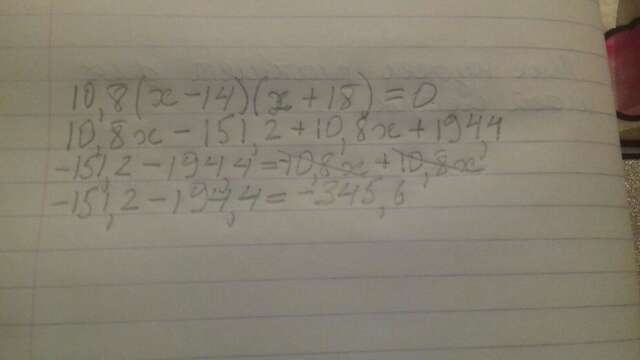 10,8(x-14)(x+18)=0
10,8x-151,2+10,8x+194,4
-151,2-194,4=-10,8x+10,8x
-151,2-194,4=-345,6